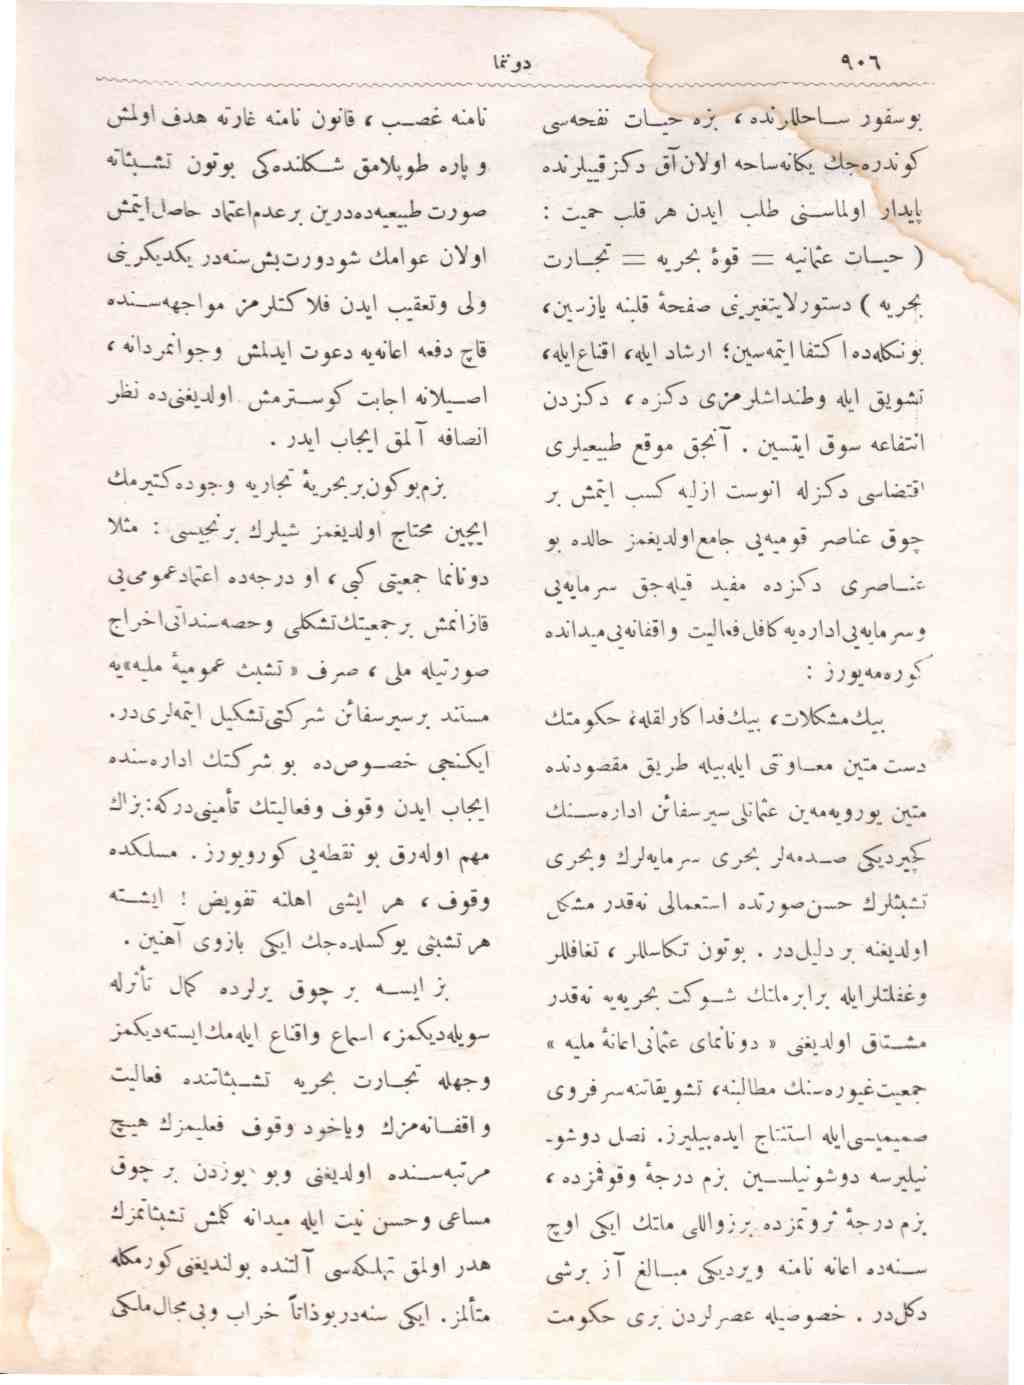 ٩٠٦
دوننما
بوسفور ساحللرنده ، بزه حیات نفحه‌سی
كوندره‌جك یكانه‌ساحه اولان‌آق دكزقییلرنده
پایدار اولماسنی طلب ایدن هر قلب حمیت :
( حیات عثمانیه = قوۀ بحریه = تجارت
بحریه ) دستورلایتغیرینی صفحۀ قلبنه یازسین،
بونكله‌ده اكتفا ایتمه‌سین؛ ارشاد ایله، اقناع‌ایله،
تشویق ایله وطنداشلرمزی دكزه ، دكزدن
انتفاعه سوق ایتسین . آنجق موقع طبیعیلری
اقتضاسی دكزله انوست ازلیه كسب ایتمش بر
چوق عناصر قومیه‌یی جامع‌اولدیغمز حالده بو
عناصری دكزده مفید قیله‌جق سرمایه‌یی
وسرمایه‌یی‌اداره‌یه كافل‌فعالیت واقفانه‌یی‌میدانده
كوره‌مه‌یورز :
بیك‌مشكلات، بیك‌فداكارلقله، حكومتك
دست متین معاونتی ایله‌بیله طریق مقصودنده
متین یورویه‌مه‌ین عثمانلی‌سیرسفائن اداره‌سنك
كچیردیكی صدمه‌لر بحری سرمایه‌لرك وبحری
تشبثلرك حسن‌صورتده استعمالی نه‌قدر مشكل
اولدیغنه بر دلیل‌در . بوتون تكاسللر ، تغافللر
وغفلتلرایله برابرملتك شوكت بحریه‌یه نه‌قدر
مشتاق اولدیغنی « دونانمای عثمانی‌اعانۀ ملیه »
جمعیت‌غیوره‌سنك مطالبنه، تشویقاتنه‌سرفروی
صمیمیسی‌ایله استنتاج ایده‌بیلیرز. نصل دوشو-
نیلیرسه دوشونیلسین بزم درجۀ وقوفمزده ،
بزم درجۀ ثروتمزده برزواللی ملتك ایكی اوچ
سنه‌ده اعانه نامنه ویردیكی مبالغ آز برشی
دكل‌در . خصوصیله عصرلردن بری حكومت
نامنه غصب ، قانون نامنه غارته هدف اولمش
و پاره طوپلامق شكلنده‌كی بوتون تشبثاته
صورت طبیعیه‌ده‌درین برعدم‌اعتماد حاصل‌ایتمش
اولان عوامك شودورت‌بش‌سنه‌در یكدیكرینی
ولی وتعقیب ایدن فلاكتلرمز مواجهه‌سنده
قاچ دفعه اعانه‌یه دعوت ایدلمش وجوانمردانه ،
اصیلانه اجابت كوسترمش اولدیغنی‌ده نظر
انصافه آلمق ایجاب ایدر .
بزم‌بوكون‌بربحریۀ تجاریه وجوده‌كتیرمك
ایچین محتاج اولدیغمز شیلرك برنجیسی : مثلا
دونانما جمعیتی كبی ، او درجه‌ده اعتمادعمومی‌یی
قازانمش برجمعیتك‌تشكلی وحصه‌سنداتی‌اخراج
صورتیله ملی ، صرف « تشبث عمومیۀ ملیه»یه
مستند برسیرسفائن شركتی‌تشكیل ایتمه‌لری‌در.
ایكنجی خصوص‌ده بو شركتك اداره‌سنده
ایجاب ایدن وقوف وفعالیتك تأمینی‌دركه:بزاك
مهم اوله‌رق بو نقطه‌یی كورویورز. مسلكده
وقوف ، هر ایشی اهلنه تفویض ! ایشته
هرتشبثی یوكسلده‌جك ایكی بازوی آهنین .
بز ایسه بر چوق یرلرده كمال تأثرله
سویله‌دیكمز، اسماع واقناع ایله‌مك‌ایسته‌دیكمز
وجهله تجارت بحریه تشبثاتنده فعالیت
واقفانه‌مزك ویاخود وقوف فعلیمزك هیچ
مرتبه‌سنده اولدیغنی وبو یوزدن بر چوق
مساعی وحسن نیت ایله میدانه كلمش تشبثاتمزك
هدر اولمق تهلكه‌سی آلتنده بولندیغنی‌كورمكله
متألمز. ایكی سنه‌دربوذاتاً خراب وبی‌مجال‌ملكی